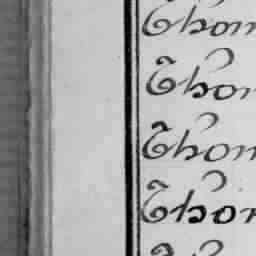 Thom
Thom
Thom
Thom